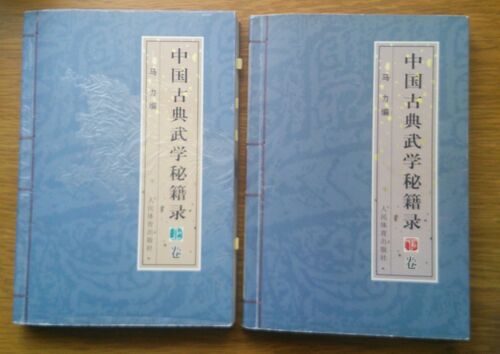 中国古典武学秘籍录
上卷
马力编
人民体育出版社
中国古典武学秘籍录
下卷
马力编
人民体育出版社